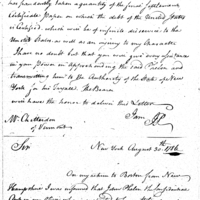 has fraudently taken a quantity of the final Settlement
Certificate Paper on which the debt of the United States
is Certified, which will be of infinite disservice to the
United States, as well as an injury to my Character
I have no doubt but that you will give every assistance
in your Power in apprehending the said Person and
transmitting him to the Authority of the State of New
York for his Tryal. The Bearer
will have the honor to deliver this Letter
I am
Mr. Chittenden
of Vermont
Sir
New York August 30th 1786
On my return to Boston from New
Hampshire I was informed that John